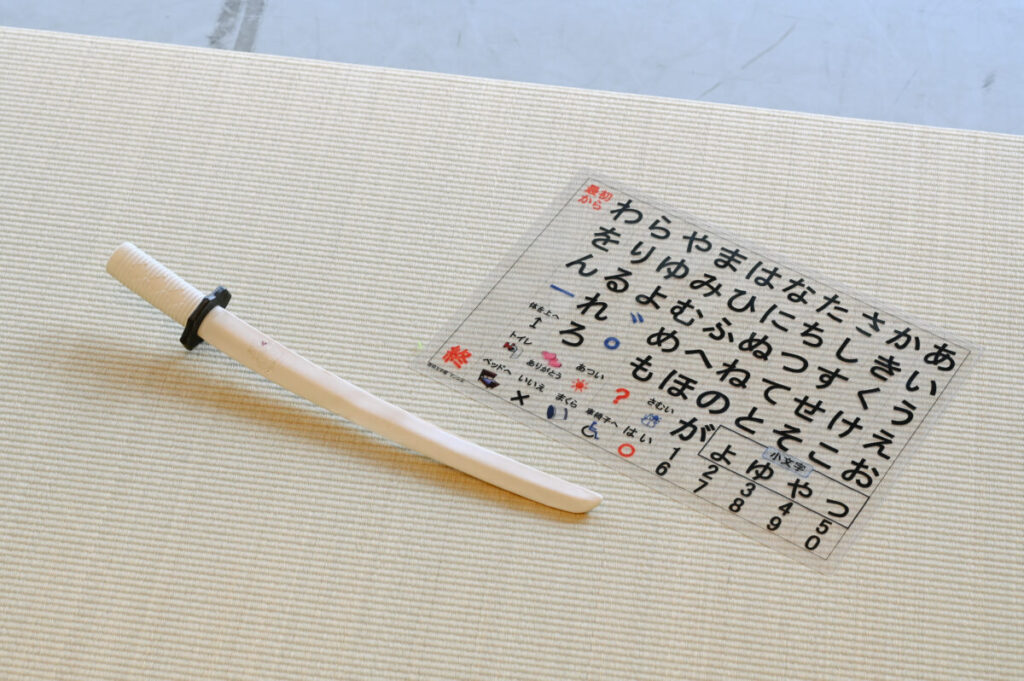 あいうえお
かきくけこ
さしすせそ
たちつてと
なにぬねの
はひふへほ
まみむめも
やゆよ゛゜?
らりるれろ
わをんー
最初
から
が
小文字
つやゆよ
1 2 3 4 5
6 7 8 9 0
体を上へ
トイレ
ありがとう
あつい
さむい
ベッドへ
いいえ
まくら
車椅子へ
はい
終